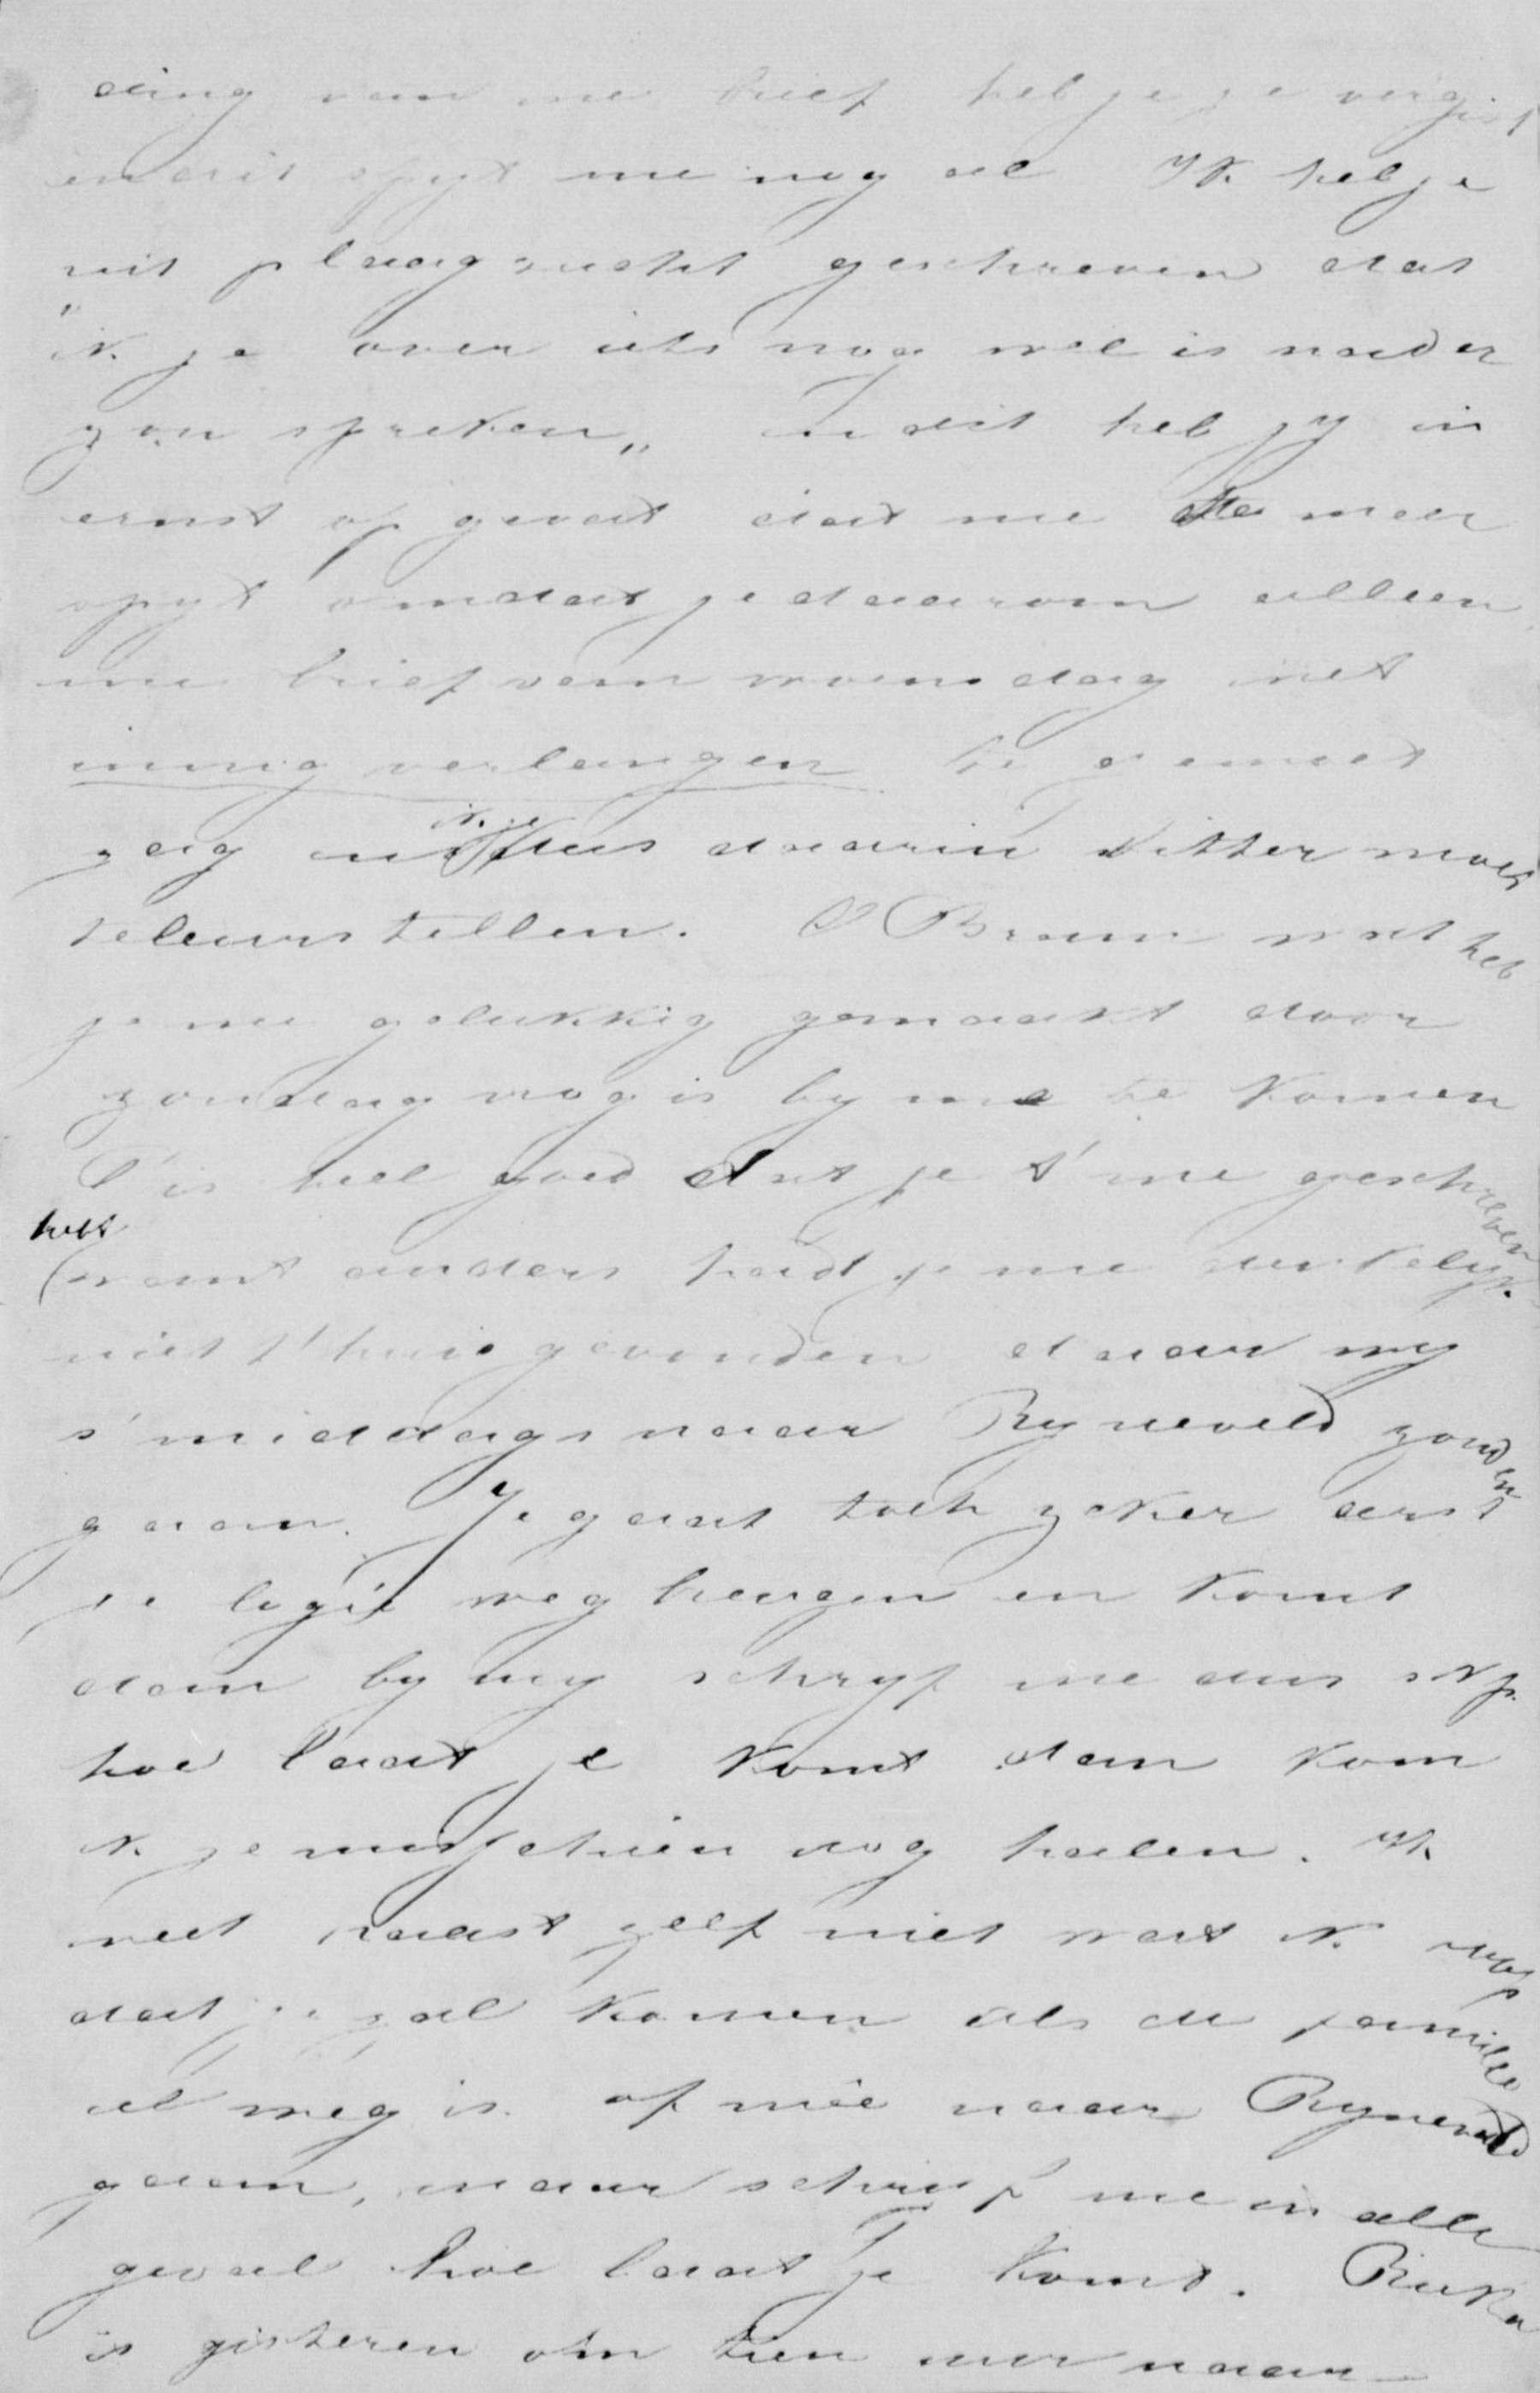 ding van me brief heb je je vergist
en dit spyt me nog al Ik heb je
uit plaagzucht geschreven dat
"ik je over iets nog wel is nader
zou spreken„ en dit heb jy in
ernst op gevat dat me te meer
spyt omdat je daarom alleen
me brief van woensdag met
innig verlangen te gemoet
zag en ik je dus daarin bitter moest
teleurstellen. O Bram wat heb
je me gelukkig gemaakt door
zondag nog is by me te komen
t'is heel goed dat je t' me geschreven
hebt
want anders had je me
niet t'huis gevonden daar wy
s'middags naar Ryneveld zouden
gaan. Je gaat toch zeker eerst
je logié weg brengen en komt
dan by my schryf me dus
hoe laat je komt dan kom
ik je misschien nog halen. Ik
weet haast zelf niet wat ik
dat je zal komen als de familie
al weg is of meê naar Ryneveld
gaan, maar schryf me in alle
geval hoe laat je komt. Rieka
is gisteren om tien uur naar